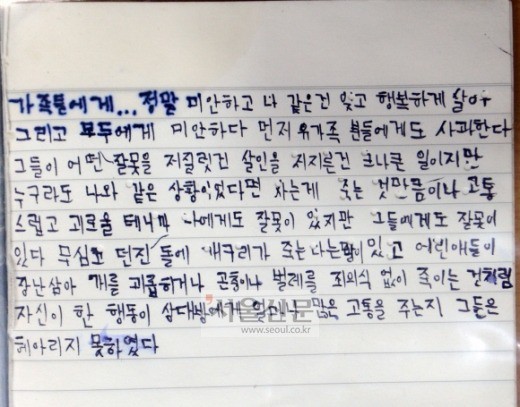 가족분에게... 정말 미안하고 나 같은건 잊고 행복하게 살아
그리고 모두에게 미안하다 먼저 유가족 분들에게도 사과한다
그들이 어떤 잘못을 저질럿건 살인을 저지른건 크나큰 일이지만
누구라도 나와 같은 상황이었다면 사는게 죽는 것만큼이나 고통
스럽고 괴로울 테니까 나에게도 잘못이 있지만 그들에게도 잘못이
있다 무심코 던진 돌에 개구리가 죽는다는 말이 있고 어린애들이
장난삼아 개를 괴롭히거나 곤충이나 벌레를 죄의식 없이 죽이는 것처럼
자신이 한 행동이 상대방에게 얼마나 많은 고통을 주는지 그들은
헤아리지 못하였다
서울신문
www.seoul.co.kr